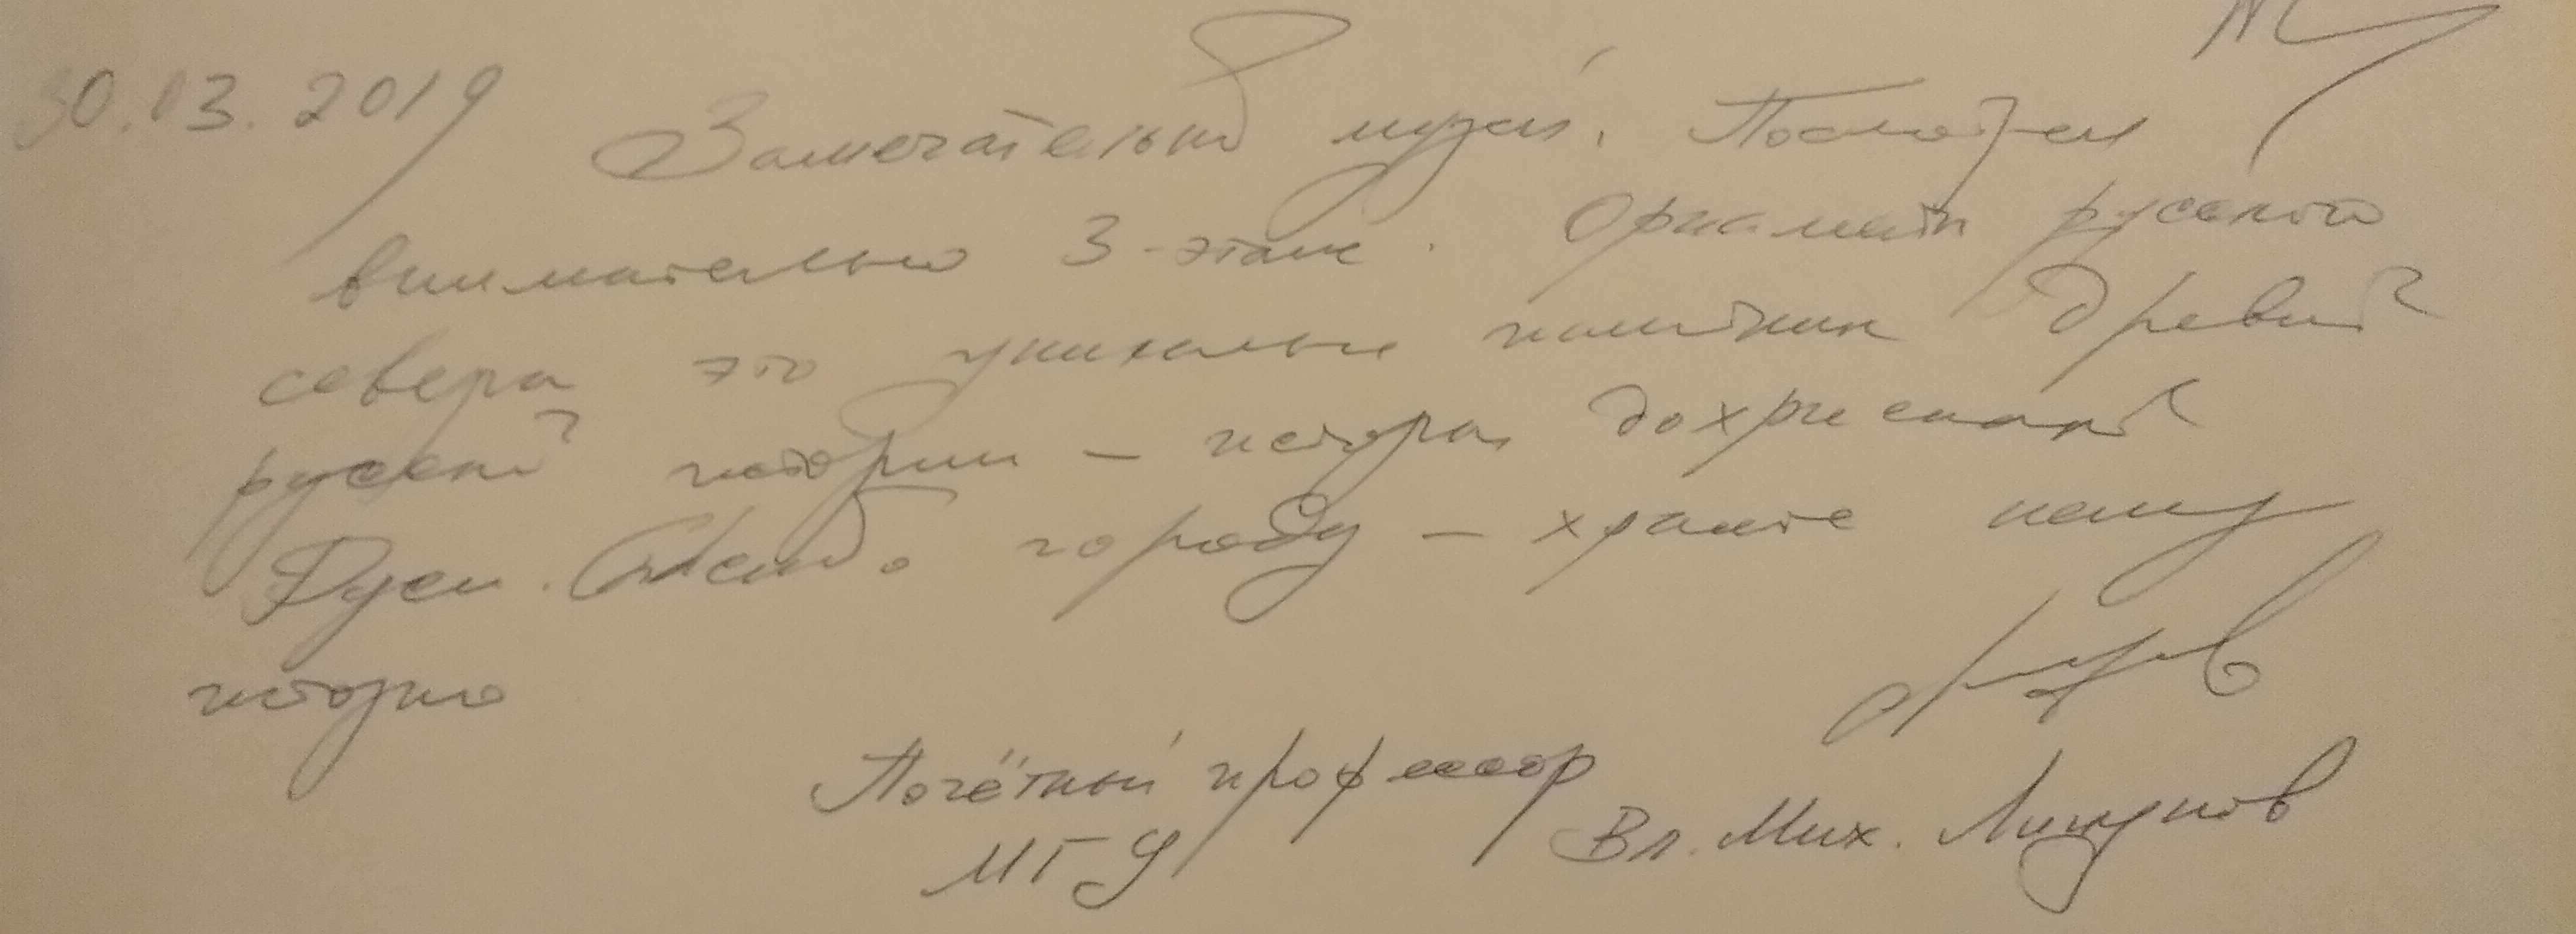 30.03.2019
Замечательный музей. Посмотрел
внимательно 3-этаж. Орнаменты русского
севера это уникальные памятники древней
русской истории – история дохристианской
Руси. Спасибо городу – храните нашу
историю
Почётный профессор
МГУ Вл. Мих.